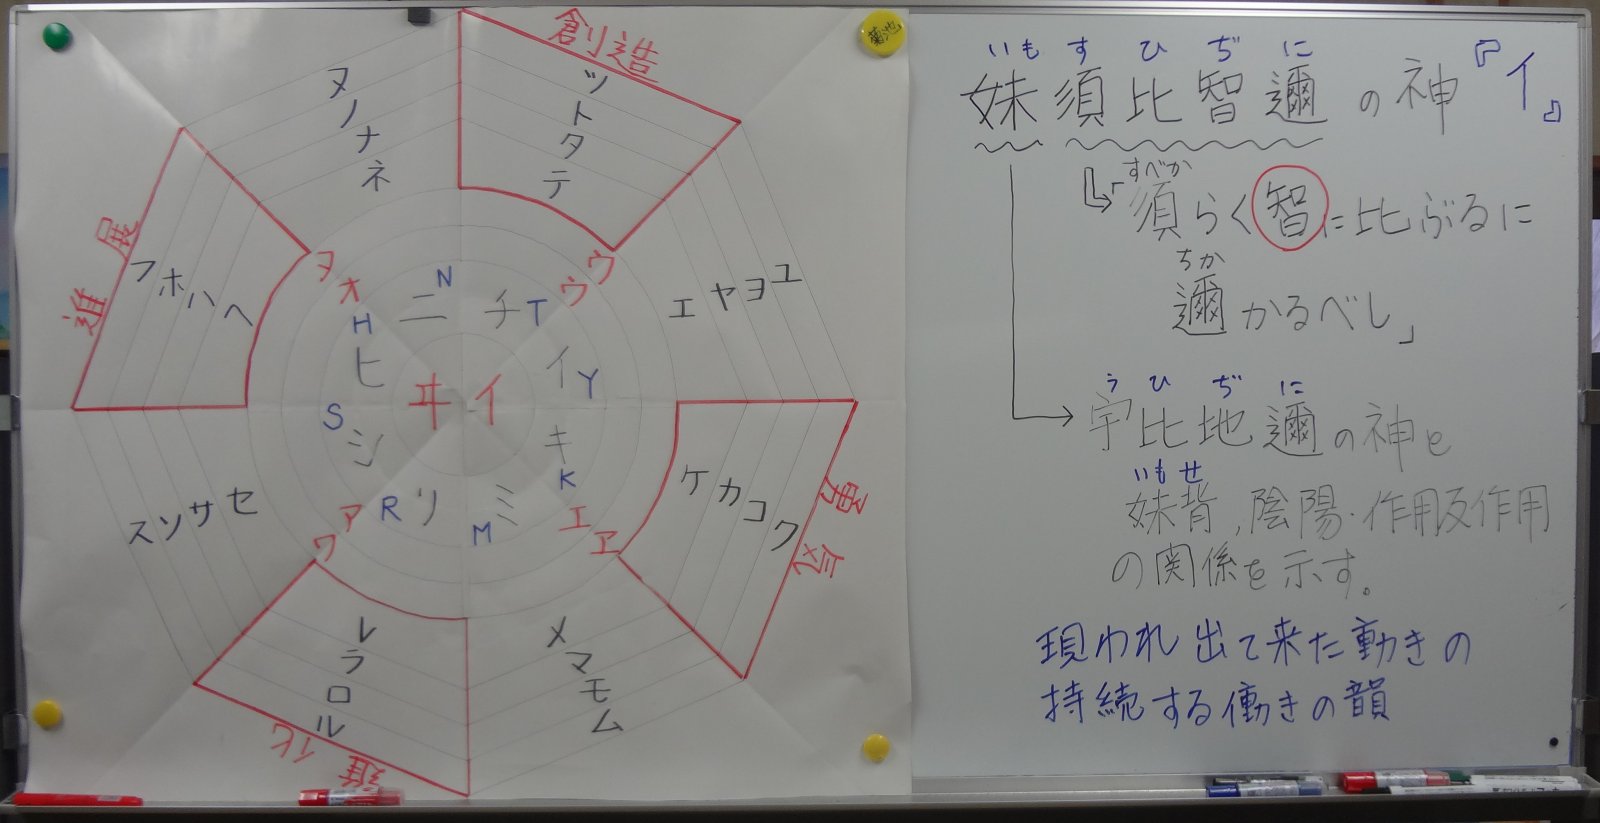 創造
ヌノナネ
ツトタテ
進展
フホハヘ
ヲオ
ウウ
エヤヨユ
ニN
チT
H
ヒ
イY
ヰイ
S
シ
キ
K
Rリ
ミ
M
アワ
エヱ
ケカコク
勇気
スソサセ
レラロル
進化
メマモム
菊池
いもすひぢに
妹須比智邇の神『イ』
すべか
「須らく智に比ぶるに
ちか
邇かるべし」
うひぢに
宇比地邇の神と
いもせ
妹背,陰陽・作用反作用
の関係を示す。
現われ出て来た動きの
持続する働きの韻